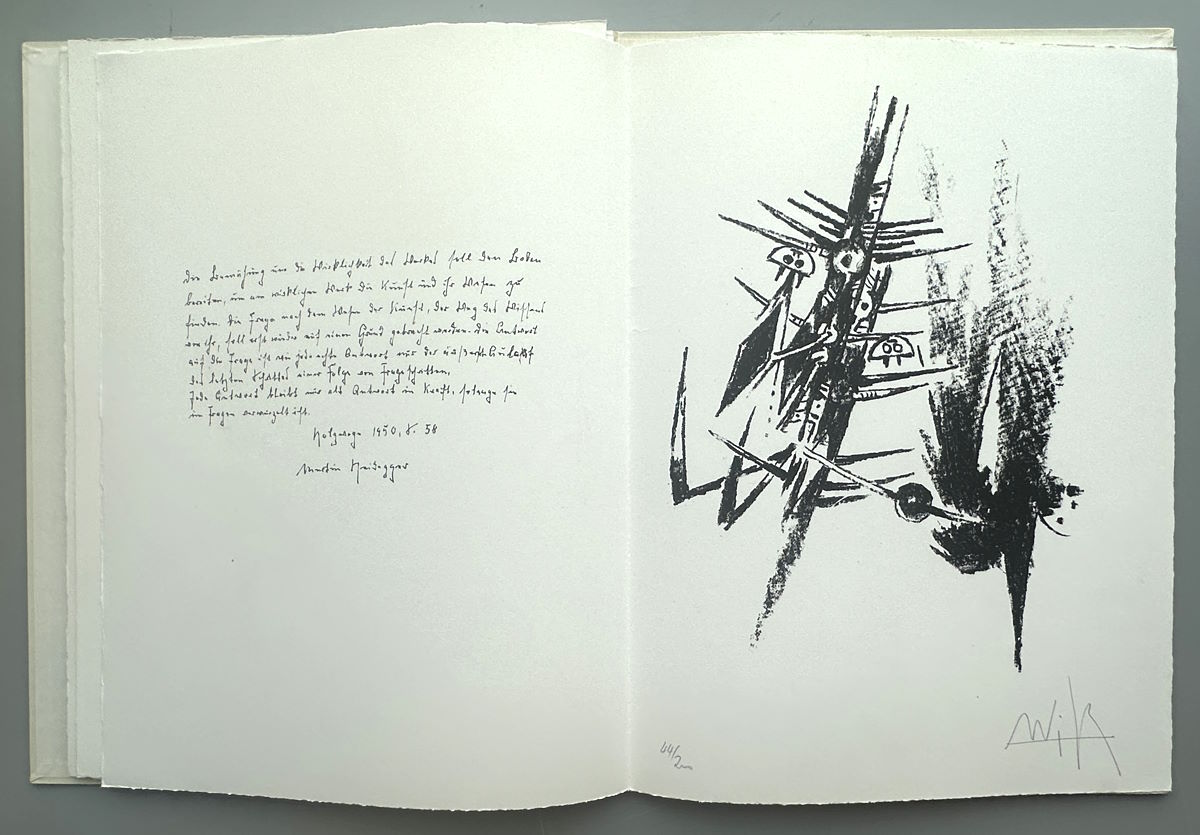 Die Bemühung um die Wirklichkeit des Werkes soll den Boden
bereiten, um am wirklichen Werk die Kunst und ihr Wesen zu
finden. Die Frage nach dem Wesen der Kunst, der Weg des Wissens
von ihr, soll erst wieder auf einen Grund gebracht werden. Die Antwort
auf die Frage ist wie jede echte Antwort nur der äußerste Auslauf
des letzten Schrittes einer Folge von Frageschritten.
Jede Antwort bleibt nur als Antwort in Kraft, solange sie
im Fragen verwurzelt ist.
Holzwege 1950, S. 58
Martin Heidegger
44/200